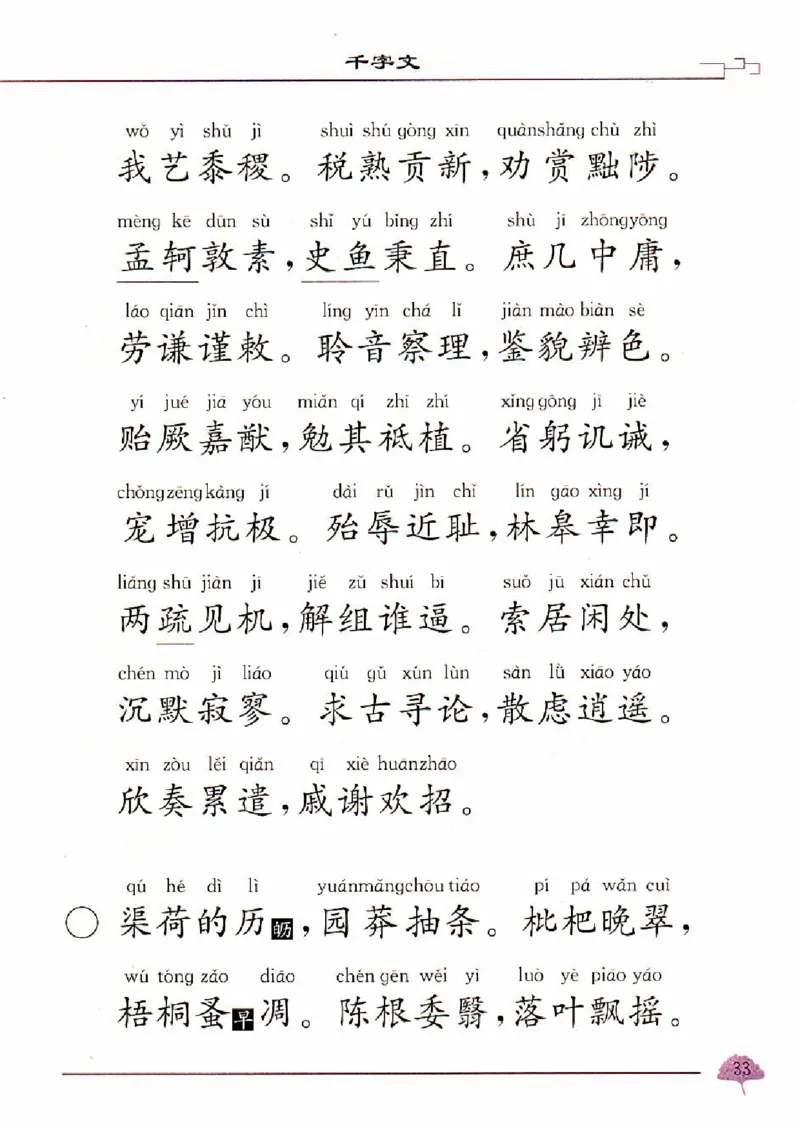 千字文
wǒ yì shǔ jì shuì shú gòng xīn quànshǎng chù zhì
我艺黍稷。税熟贡新,劝赏黜陟。
mèng kē dūn sù shǐ yú bǐng zhí shù jī zhōngyōng
孟轲敦素,史鱼秉直。庶几中庸,
láo qiān jǐn chì líng yīn chá lǐ jiàn mào biàn sè
劳谦谨敕。聆音察理,鉴貌辨色。
yí jué jiā yóu miǎn qí zhī zhí xǐng gōng jī jiè
贻厥嘉猷,勉其祗植。省躬讥诫,
chǒngzēngkàng jí dài rǔ jìn chǐ lín gāo xìng jí
宠增抗极。殆辱近耻,林皋幸即。
liǎng shū jiàn jī jiě zǔ shuí bī suǒ jū xián chǔ
两疏见机,解组谁逼。索居闲处,
chén mò jì liáo qiú gǔ xún lùn sàn lǜ xiāo yáo
沉默寂寥。求古寻论,散虑逍遥。
xīn zòu lěi qiǎn qī xiè huānzhāo
欣奏累遣,戚谢欢招。
qú hé dì lì yuánmǎngchōu tiáo pí pá wǎn cuì
○渠荷的历㔏,园莽抽条。枇杷晚翠,
wú tóng zǎo diāo chén gēn wěi yì luò yè piāo yáo
梧桐蚤早凋。陈根委翳,落叶飘摇。
33